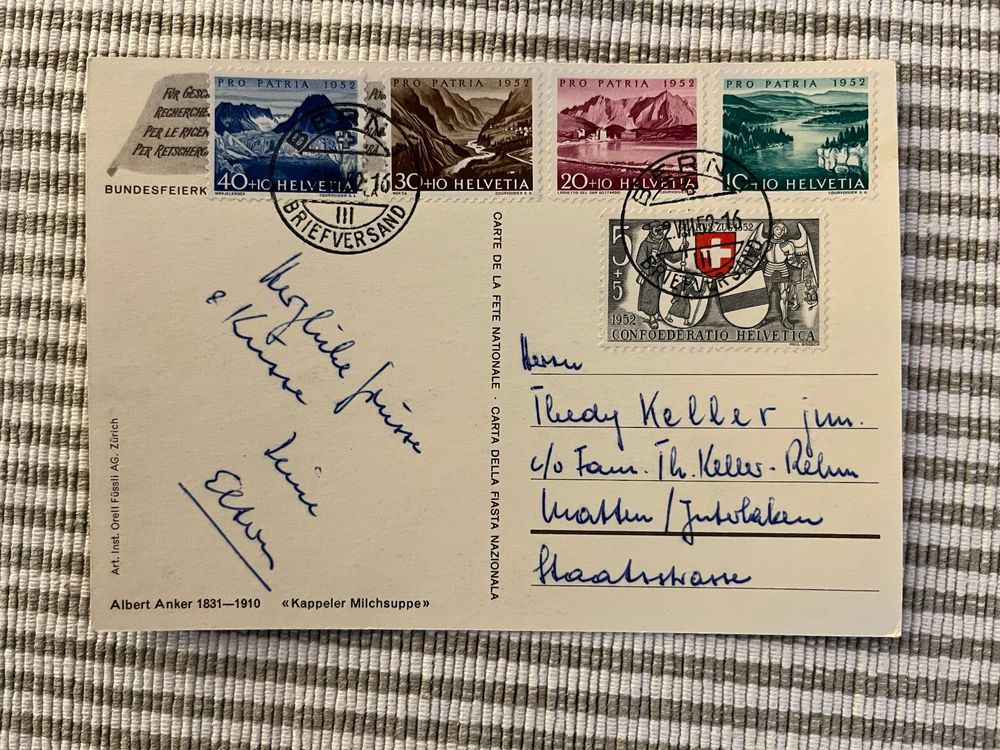 FÜR GESC
RECHERCHE
PER LE RICER
PER RETSCHERG
BUNDESFEIERK
PRO PATRIA 1952
40+10 HELVETIA
MÄRJELENSEE COURVOISIER S.A.
PRO PATRIA 1952
30+10 HELVETIA
MOESA COURVOISIER S.A.
PRO PATRIA 1952
20+10 HELVETIA
LAGHETTO DEL SAN GOTTARDO COURVOISIER S.A.
PRO PATRIA 1952
10+10 HELVETIA
COURVOISIER S.A.
BERN
52-16
III
BRIEFVERSAND
BERN
VIII.52-16
III
BRIEFVERSAND
ZUG 1352
5
+
5
1952
CONFOEDERATIO HELVETICA
PAUL BOESCH
Herzliche Grüsse
& Küsse
Deine
Eltern
CARTE DE LA FETE NATIONALE · CARTA DELLA FIASTA NAZIONALA
Herrn
Thedy Keller jun.
c/o Fam. Th. Keller-Rehm
Matten / Interlaken
Staatsstrasse
Art. Inst. Orell Füssli AG. Zürich
Albert Anker 1831—1910 «Kappeler Milchsuppe»